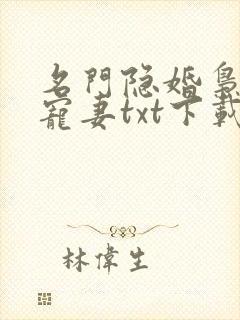 名門隐婚梟
寵妻txt下載
林偉生